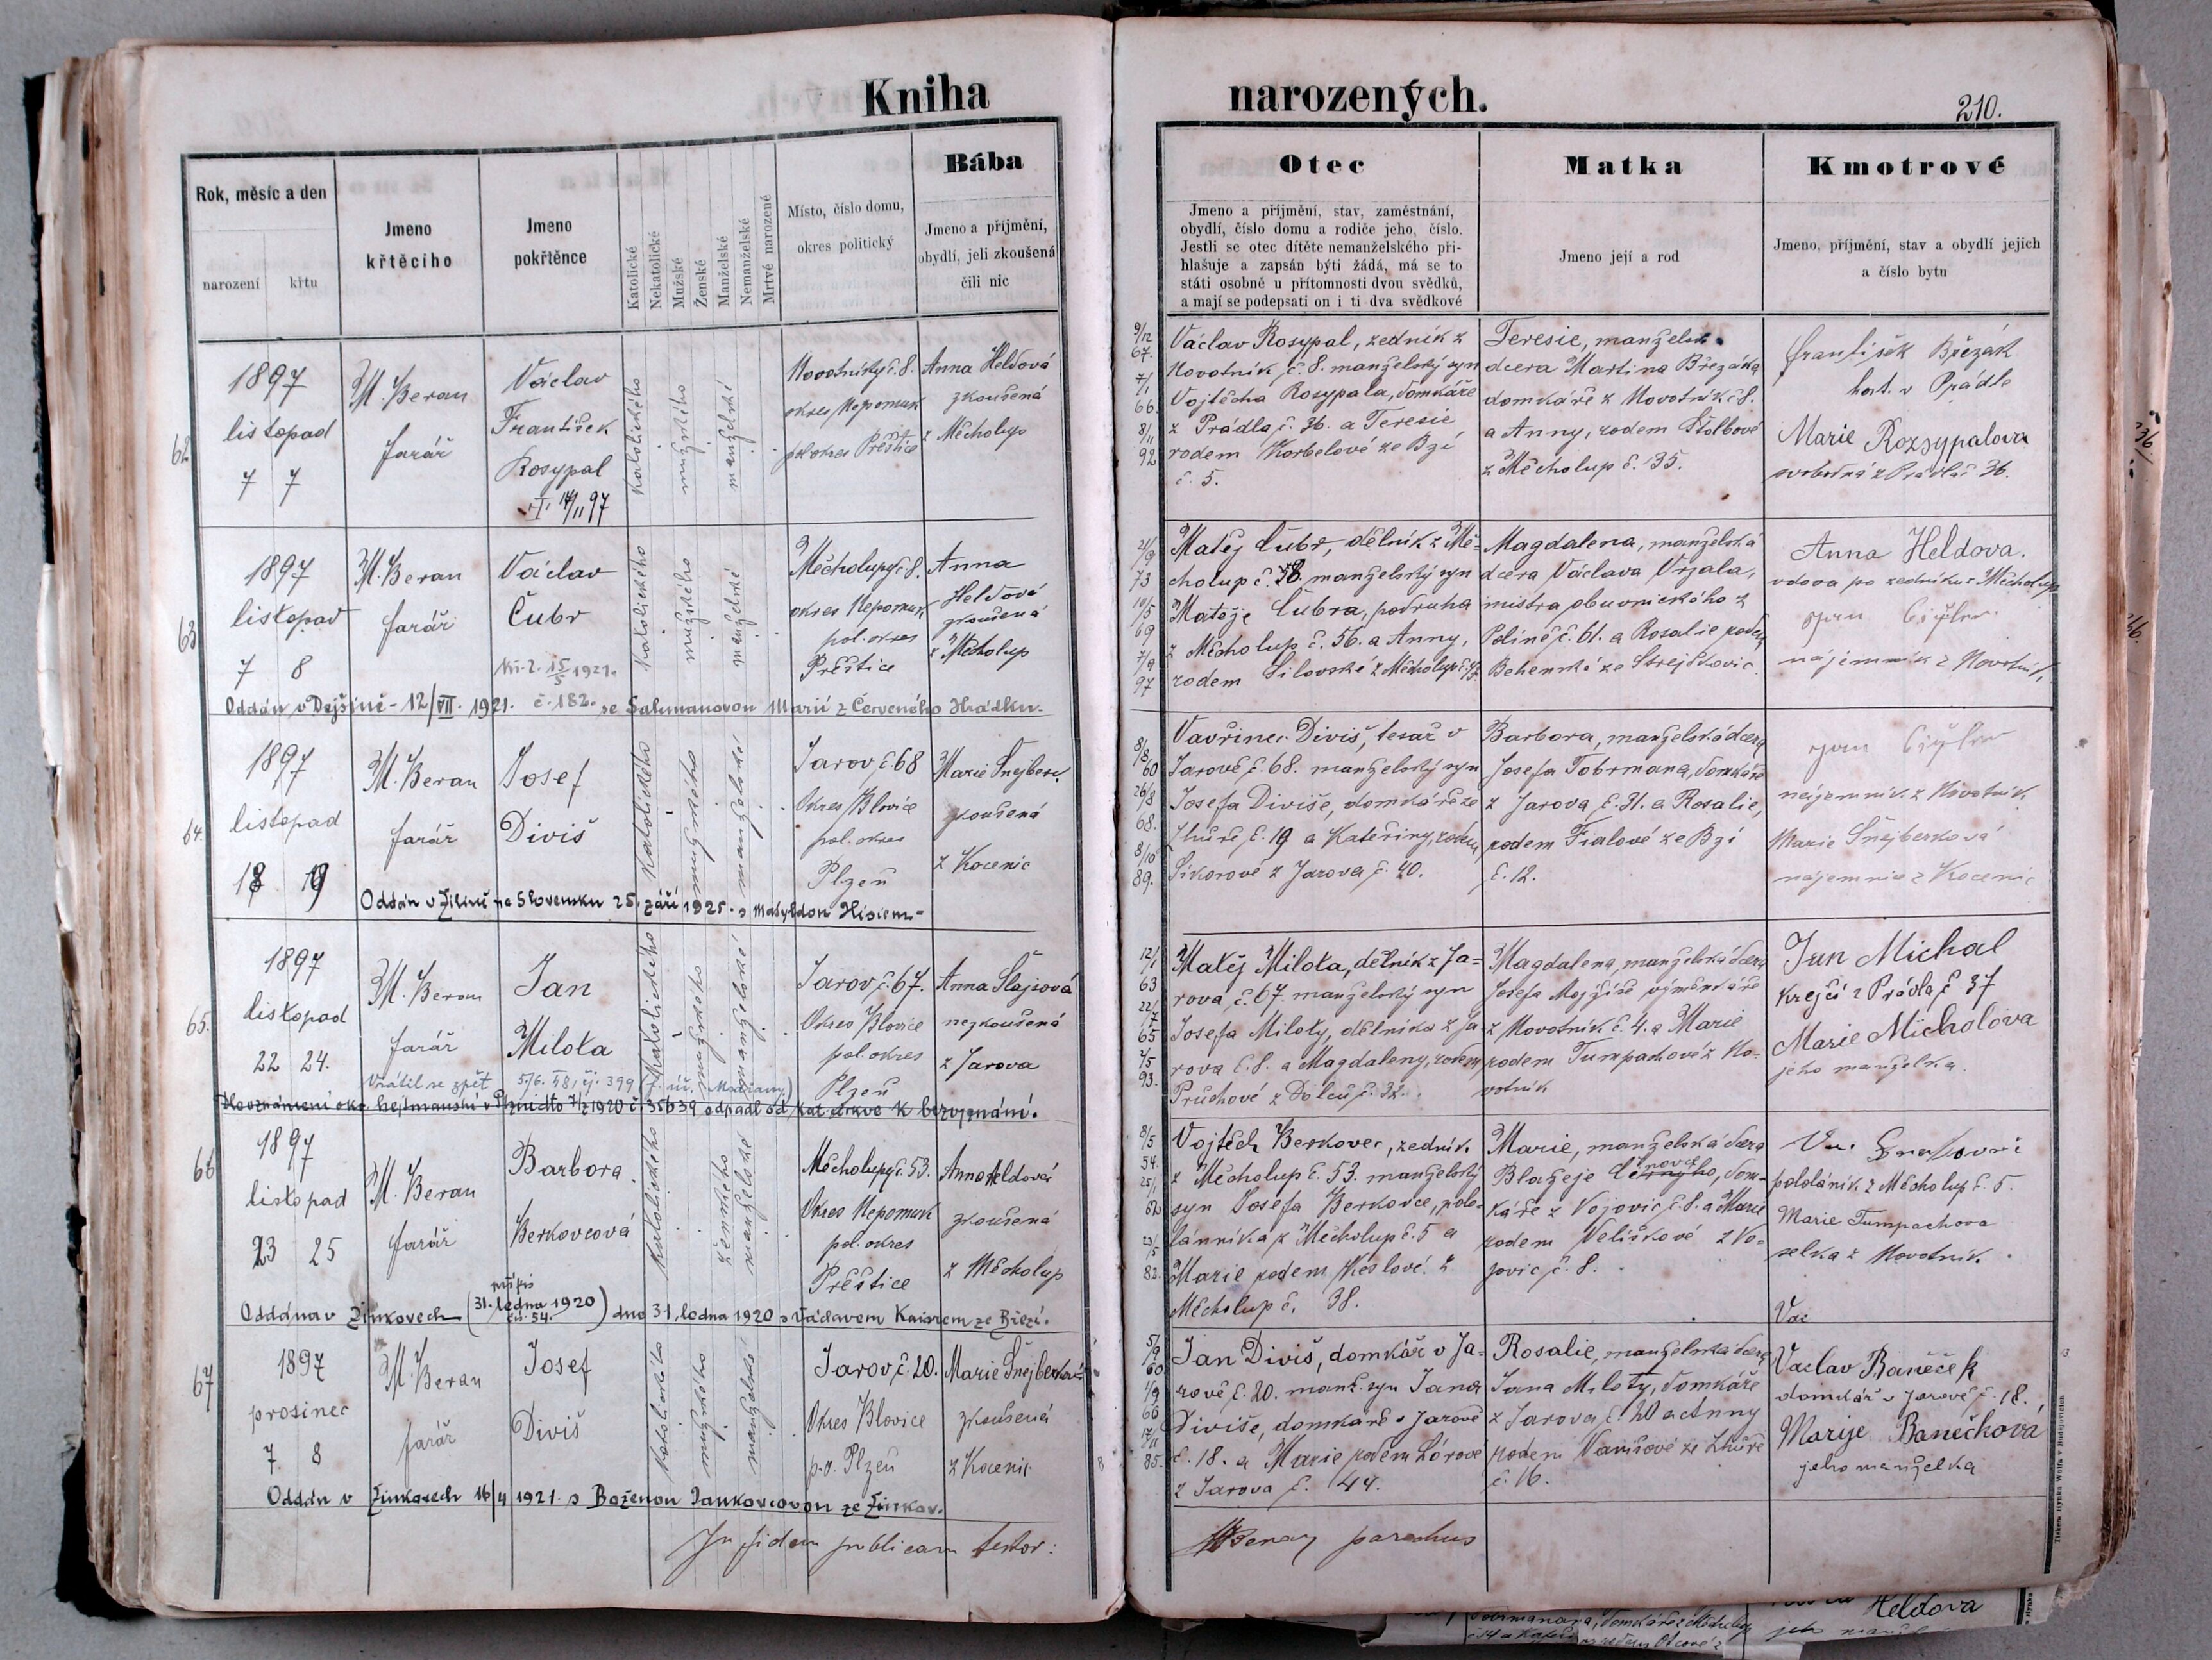 Kniha
narozených.
210.
Rok, měsíc a den
narození
křtu
Jmeno
křtěcího
Jmeno
pokřtěnce
Katolické
Nekatolické
Mužské
Ženské
Manželské
Nemanželské
Mrtvě narozené
Místo, číslo domu,
okres politický
Bába
Jmeno a příjmění,
obydlí, jeli zkoušená
čili nic
Otec
Jmeno a příjmění, stav, zaměstnání,
obydlí, číslo domu a rodiče jeho, číslo.
Jestli se otec dítěte nemanželského při-
hlašuje a zapsán býti žádá, má se to
státi osobně u přítomnosti dvou svědků,
a mají se podepsati on i ti dva svědkové
Matka
Jmeno její a rod
Kmotrové
Jmeno, příjmění, stav a obydlí jejich
a číslo bytu
62
1897
listopad
7 7
M. Beran
farář
Václav
František
Rosypal
14/11 97
katolického
mužského
manželské
Novotníky č. 8.
okres Nepomuk
pol. okres Přeštice
Anna Heldová
zkoušená
z Měcholup
9/12
67.
7/1
66.
8/11
92
Václav Rosypal, zedník z
Novotník č. 8. manželský syn
Vojtěcha Rosypala, domkáře
z Prádla č. 36. a Teresie
rodem Korbelové ze Bzí
č. 5.
Teresie, manželská
dcera Martina Březáka
domkáře z Novotník č. 8.
a Anny, rodem Štolbové
z Měcholup č. 135.
František Březák
host. v Prádle
Marie Rozsypalova
svobodná z Prádla č 36.
63
1897
listopad
7 8
M. Beran
farář
Václav
Čubr
katolického
mužského
manželské
Měcholupy č 8.
okres Nepomuk
pol. okres
Přeštice
Anna
Heldová
zkoušená
z Měcholup
Oddán v Dejšině - 12/VII. 1921. č. 182. se Salzmanovou Marií z Červeného Hrádku.
21/9
73
10/5
69
7/9
97
Matěj Čubr, dělník z Mě-
cholup č. 58. manželský syn
Matěje Čubra, podruha
z Měcholup č. 56. a Anny,
rodem Silovské z Měcholup
Magdalena, manželská
dcera Václava Vrzala,
mistra obuvnického z
Polině č. 61. a Rosalie rodem
Behenské ze Strejčkovic.
Anna Heldova.
vdova po zedníku z Měcholup
nájemník z Novotník
64.
1897
listopad
18 19
M. Beran
farář
Josef
Diviš
katolického
mužského
manželské
Jarov č. 68
Okres Blovice
pol. okres
Plzeň
Marie Šnejberk.
zkoušená
z Kocenic
Oddán v Žilině na Slovensku 25. září 1925. s Matyldou Hisiem-
8/8
60
26/8
68.
8/10
89.
Vavřinec Diviš, tesař v
Jarově č. 68. manželský syn
Josefa Diviše, domkáře ze
Zhůře č. 19 a Kateřiny, rodem
Sikorové z Jarova č. 40.
Barbora, manželská dcera
Josefa Tobrmana, domkáře
z Jarova č. 31. a Rosalie,
rodem Fialové ze Bzí
č. 12.
nájemník z Novotník
Marie Šnejberková
nájemnice z Kocenic
65.
1897
listopad
22 24.
M. Beran
farář
Jan
Milota
katolického
mužského
manželské
Jarov č. 67.
Okres Blovice
pol. okres
Plzeň
Anna Šlajsová
nezkoušená
z Jarova
Vrátil se zpět
odpadl od kat. církve k bezvyznání.
12/1
63
65
7/5
93.
Matěj Milota, dělník z Ja-
rova č. 67. manželský syn
Josefa Miloty, dělníka z Ja-
rova č. 8. a Magdaleny, rodem
Průchové z Dolců č. 32.
Magdalena, manželská dcera
Josefa Mojžíše výměnkáře
z Novotník č. 4. a Marie
rodem Tumpachové z No-
votník
Jan Michal
krejčí z Prádla č 37
Marie Michalova
jeho manželka.
66
1897
listopad
23 25
M. Beran
farář
Barbora
Berkovcová
katolického
ženského
manželské
Měcholupy č. 53.
Okres Nepomuk
pol. okres
Přeštice
Anna Heldová
zkoušená
z Měcholup
Oddána v Žinkovech (31. ledna 1920 čís. 54.) dne 31. ledna 1920 s Václavem Kaisrem ze Březí.
8/5
54.
25/1
62
23/5
82.
Vojtěch Berkovec, zedník
z Měcholup č. 53. manželský
syn Josefa Berkovce, polo-
lánníka z Měcholup č. 5 a
Marie rodem Keslové z
Měcholup č. 38.
Marie, manželská dcera
Blažeje
káře z Vojovic č. 8. a Marie
rodem Veliškové z Vo-
jovic č. 8.
pololáník z Měcholup č. 5.
Marie Tumpachova
selka z Novotník.
Vac
67
1897
prosinec
7. 8
M. Beran
farář
Josef
Diviš
katolického
mužského
manželské
Jarov č. 20.
Okres Blovice
p. o. Plzeň
Marie Šnejberková
zkoušená
z Kocenic
Oddán v Žinkovech 16/4 1921. s Boženou Jankovcovou ze Žinkov.
5/9
60
1/9
66
17/11
85.
Jan Diviš, domkář v Ja-
rově č. 20. manž. syn Jana
Diviše, domkáře v Jarově
č. 18. a Marie rodem Lórové
z Jarova č. 44.
Rosalie, manželská dcera
Jana Miloty, domkáře
z Jarova č. 20 a Anny
rodem Vanišové ze Zhůře
č. 16.
Vaclav Baněček
domkář v Jarově č. 18.
Marije Banečková
jeho manželka
In fidem publicam testor:
MBeran parochus
Heldova